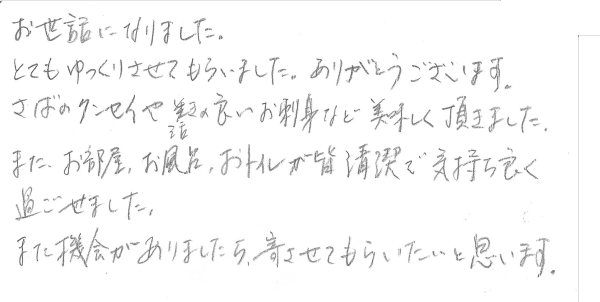 お世話になりました。
とてもゆっくりさせてもらいました。ありがとうございます。
さばのクンセイや の良いお刺身など美味しく頂きました。
また、お部屋、お風呂、おトイレが皆清潔で気持ち良く
過ごせました。
また機会がありましたら、寄させてもらいたいと思います。